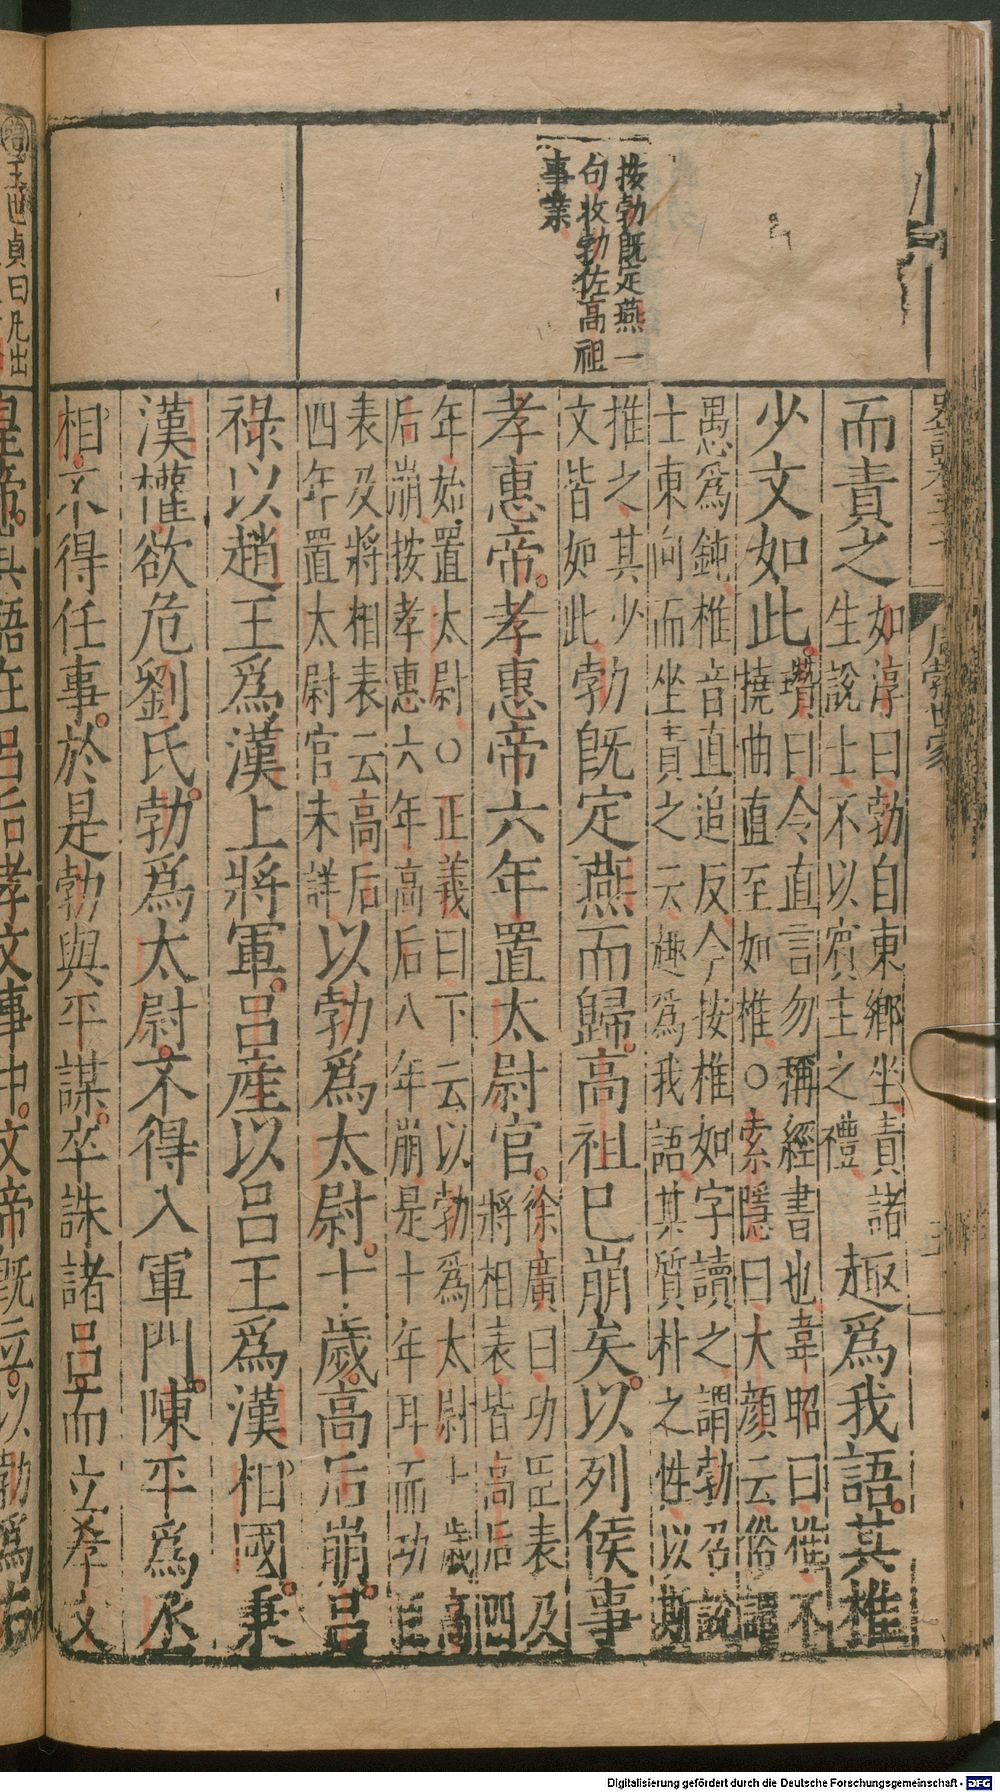 史記卷五十七
周勃世家
按勃既定燕一
句收勃佐高祖
事業
而責之如淳曰勃自東鄉坐責諸
生說士不以賓主之禮趣爲我語。其椎
少文如此。瓚曰令直言勿稱經書也韋昭曰椎不
撓曲直至如椎○索隱曰大顏云俗謂
愚爲鈍椎音直追反今按椎如字讀之謂勃召說
士東向而坐責之云趣爲我語其質朴之性以斯
推之其少
文皆如此勃既定燕而歸。高祖已崩矣。以列侯事
孝惠帝。孝惠帝六年置太尉官。徐廣曰功臣表及
將相表皆高后四
年始置太尉○正義曰下云以勃爲太尉十歲高
后崩按孝惠六年高后八年崩是十年耳而功臣
表及將相表云高后
四年置太尉官未詳以勃爲太尉。十歲。高后崩。呂
祿以趙王爲漢上將軍。呂產以呂王爲漢相國。秉
漢權欲危劉氏。勃爲太尉。不得入軍門。陳平爲丞
相。不得任事。於是勃與平謀。卒誅諸呂而立孝文
王世貞曰凡出
皇帝。其語在呂后孝文事中。文帝既立。以勃爲右
Digitalisierung gefördert durch die Deutsche Forschungsgemeinschaft - DFG